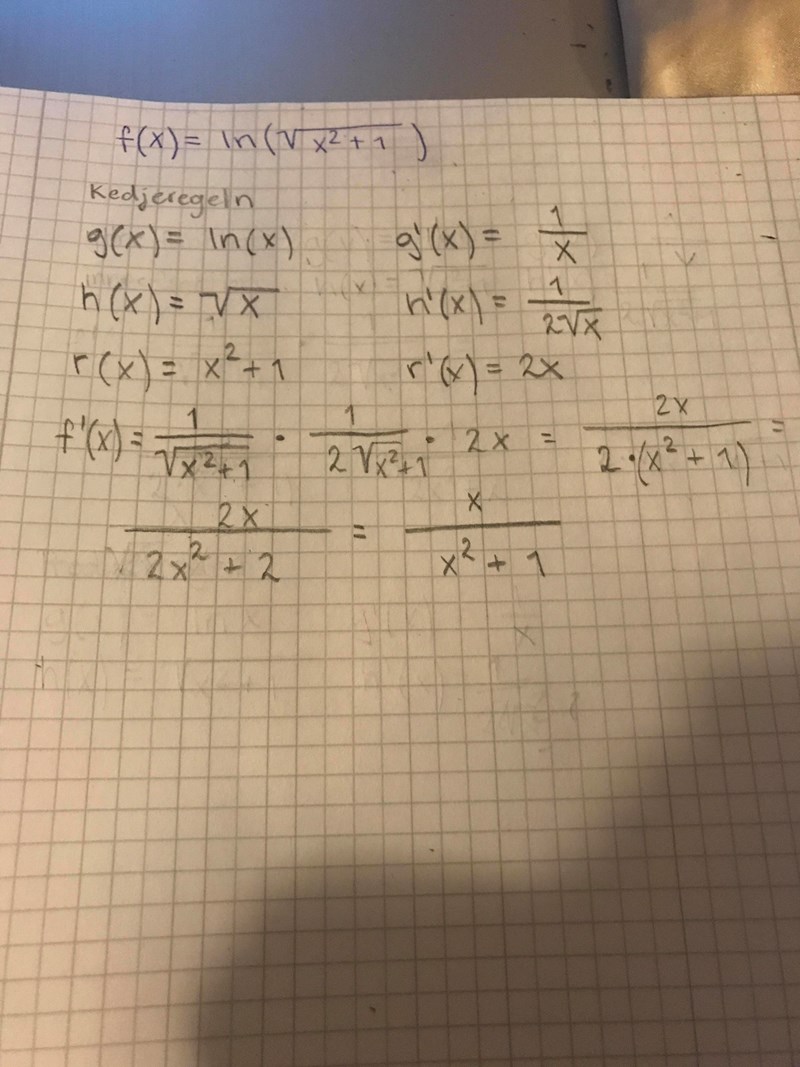 f(x) = ln(√(x² + 1))
Kedjeregeln
g(x) = ln(x) g'(x) = 1/x
h(x) = √x h'(x) = 1/(2√x)
r(x) = x² + 1 r'(x) = 2x
f'(x) = 1/√(x² + 1) · 1/(2√(x² + 1)) · 2x = 2x/(2·(x² + 1)) =
2x/(2x² + 2) = x/(x² + 1)